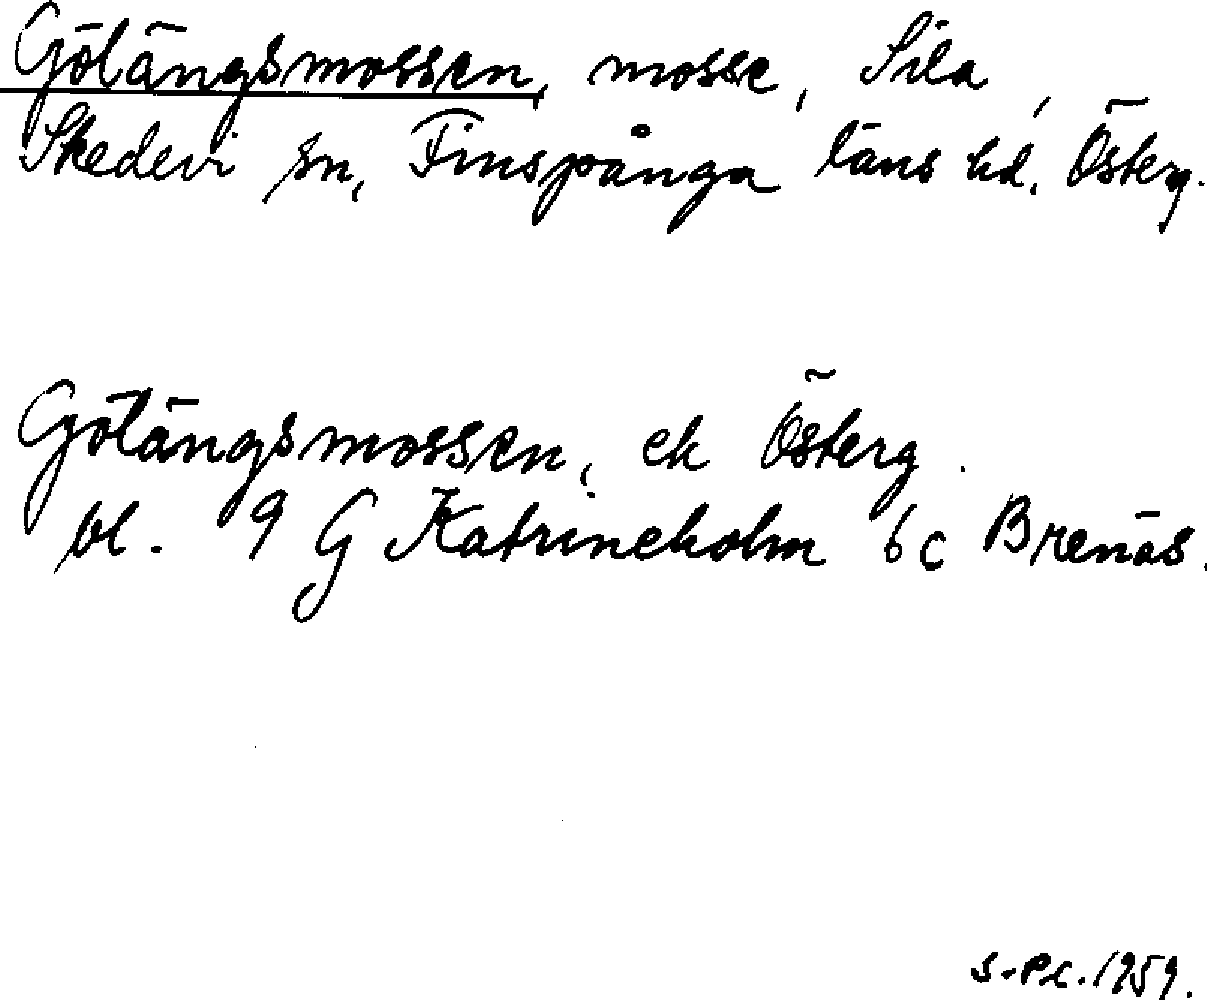 Götängsmossen, mosse, Sila,
Skedevi sn, Finspånga läns hd. Österg.
Götängsmossen, ek Österg.
bl. 9 G Katrineholm 6c Brenäs.
S-P.L. 1959.